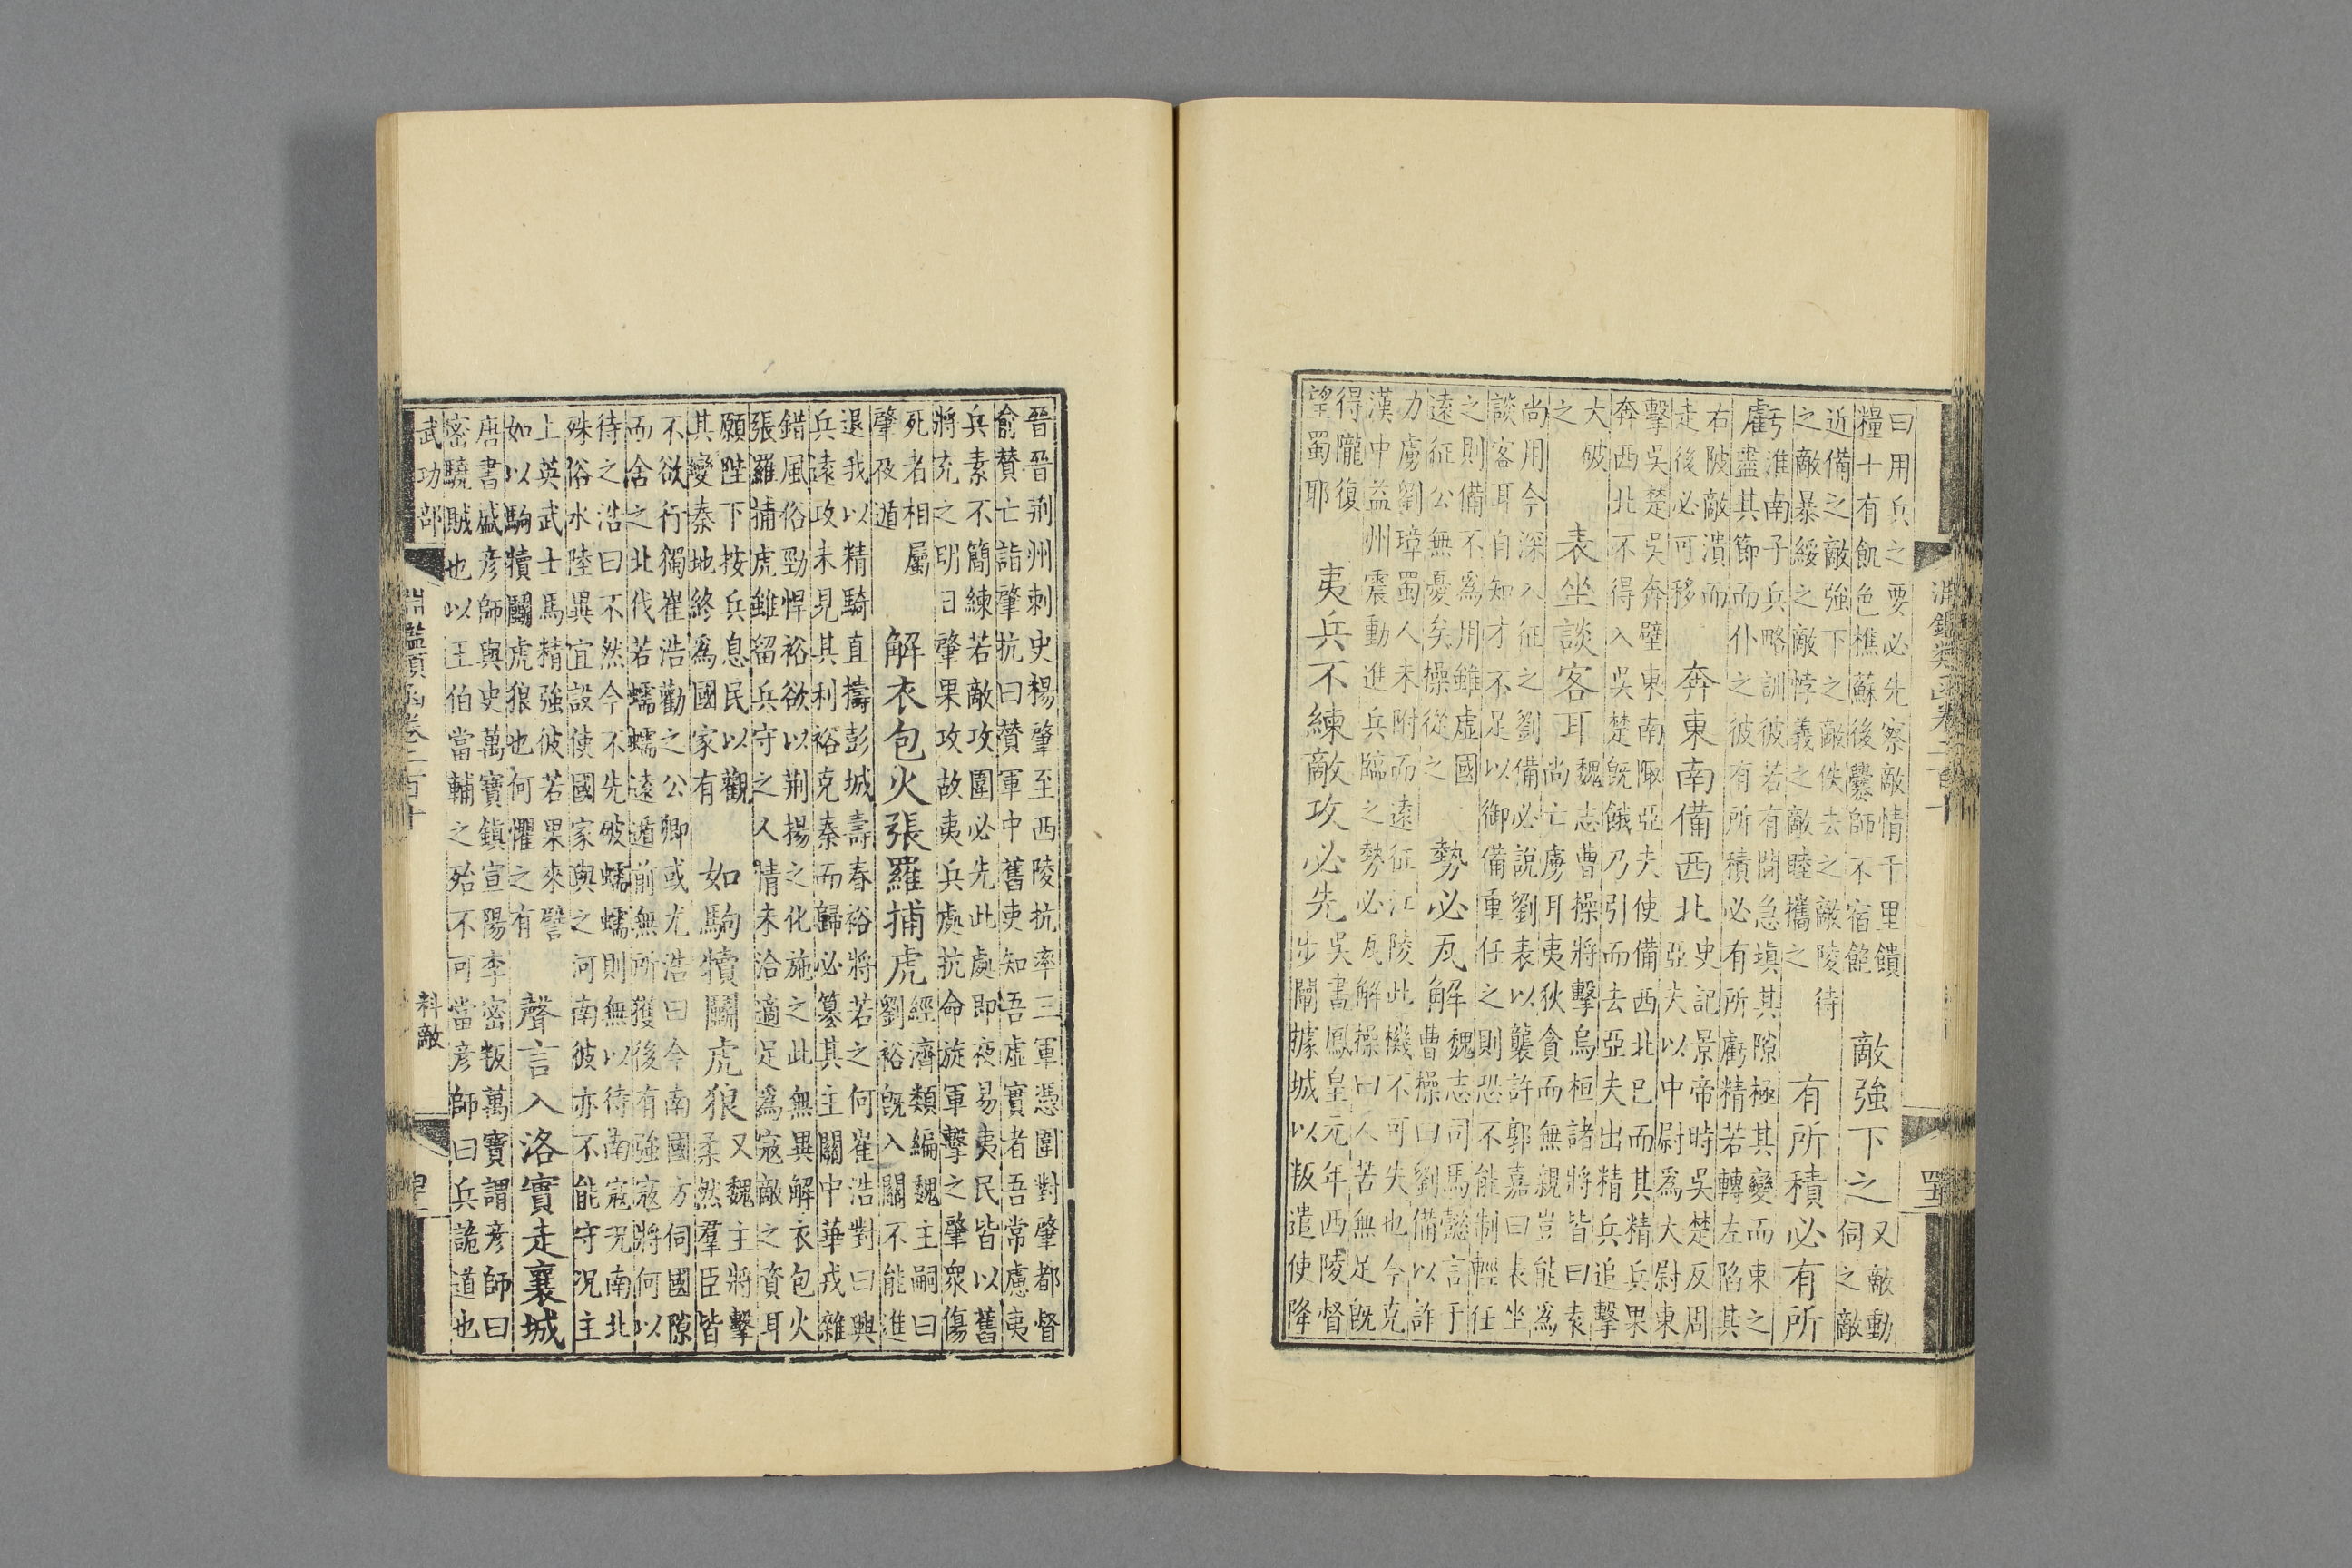 淵鑑類函卷二百十
曰用兵之要必先察敵情千里饋
糧士有飢色樵蘇後爨師不宿飽
敵強下之
又敵動
伺之敵
近備之敵強下之敵佚去之敵陵待
之敵暴綏之敵悖義之敵睦攜之
有所積必有所
虧
淮南子兵略訓彼若有間急填其隙極其變而束之
盡其節而仆之彼有所積必有所虧精若轉左陷其
右陂敵潰而
走後必可移
奔東南備西北
史記景帝時吳楚反周
亞夫以中尉爲大尉東
擊吳楚吳奔壁東南陬亞夫使備西北已而其精兵果
奔西北不得入吳楚既餓乃引而去亞夫出精兵追擊
大破
之
表坐談客耳
魏志曹操將擊烏桓諸將皆曰袁
尚亡虜耳夷狄貪而無親豈能爲
尚用今深入征之劉備必說劉表以襲許郭嘉曰表坐
談客耳自知才不足以御備重任之則恐不能制輕任
之則備不爲用雖虛國
遠征公無憂矣操從之
勢必瓦解
魏志司馬懿言于
曹操曰劉備以詐
力虜劉璋蜀人未附而遠征江陵此機不可失也今克
漢中益州震動進兵臨之勢必瓦解操曰人苦無足既
得隴復
望蜀耶
夷兵不練敵攻必先
吳書鳳皇元年西陵督
步闡據城以叛遣使降
晉晉荊州刺史楊肇至西陵抗率三軍憑圍對肇都督
俞贊亡詣肇抗曰贊軍中舊吏知吾虛實者吾常慮夷
兵素不簡練若敵攻圍必先此處即夜易夷民皆以舊
將充之明日肇果攻故夷兵處抗命旋軍擊之肇衆傷
死者相屬
肇夜遁
解衣包火張羅捕虎
經濟類編魏主嗣曰
劉裕既入關不能進
退我以精騎直擣彭城壽春裕將若之何崔浩對曰興
兵遠攻未見其利裕克秦而歸必篡其主關中華戎雜
錯風俗勁悍裕欲以荊揚之化施之此無異解衣包火
張羅捕虎雖留兵守之人情未洽適足爲寇敵之資耳
願陛下按兵息民以觀
其變秦地終爲國家有
如駒犢鬭虎狼
又魏主將擊
柔然羣臣皆
不欲行獨崔浩勸之公卿或尤浩曰今南國方伺國隙
而舍之北伐若蠕蠕遠遁前無所獲後有強寇將何以
待之浩曰不然今不先破蠕蠕則無以待南寇況南北
殊俗水陸異宜設使國家與之河南彼亦不能守況主
上英武士馬精強彼若果來譬
如以駒犢鬭虎狼也何懼之有
聲言入洛實走襄城
唐書盛彦師與史萬寶鎮宣陽李密叛萬寶謂彦師曰
密驍賊也以王伯當輔之殆不可當彦師曰兵詭道也
武功部
淵鑑類函卷二百十
料敵